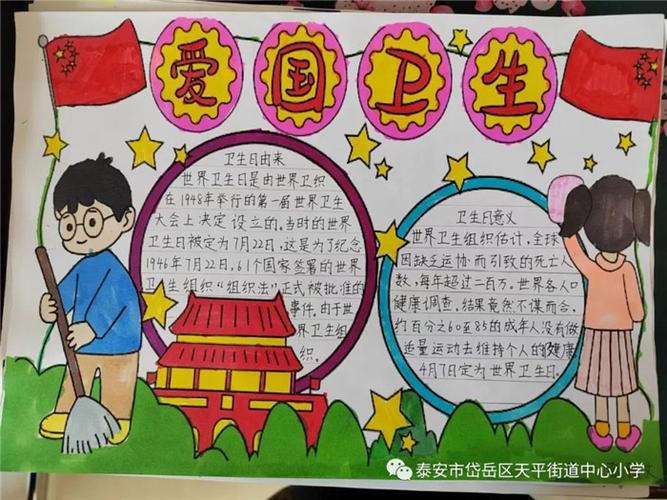 爱国卫生
卫生日由来
世界卫生日是由世界卫织
在1948年举行的第一届世界卫生
大会上决定设立的,当时的世界
卫生日被定为7月22日,这是为了纪念
1946年7月22日,61个国家签署的世界
卫生组织“组织法”正式被批准的
事件。由于世
界卫生组
织。
卫生日意义
世界卫生组织估计,全球
因缺乏运协而引致的死亡人
数,每年超过二百万。世界各人口
健康调查,结果竟然不谋而合,
约百分之60至85的成年人没有做
适量运动去维持个人的健康
4月7日定为世界卫生日。
泰安市岱岳区天平街道中心小学